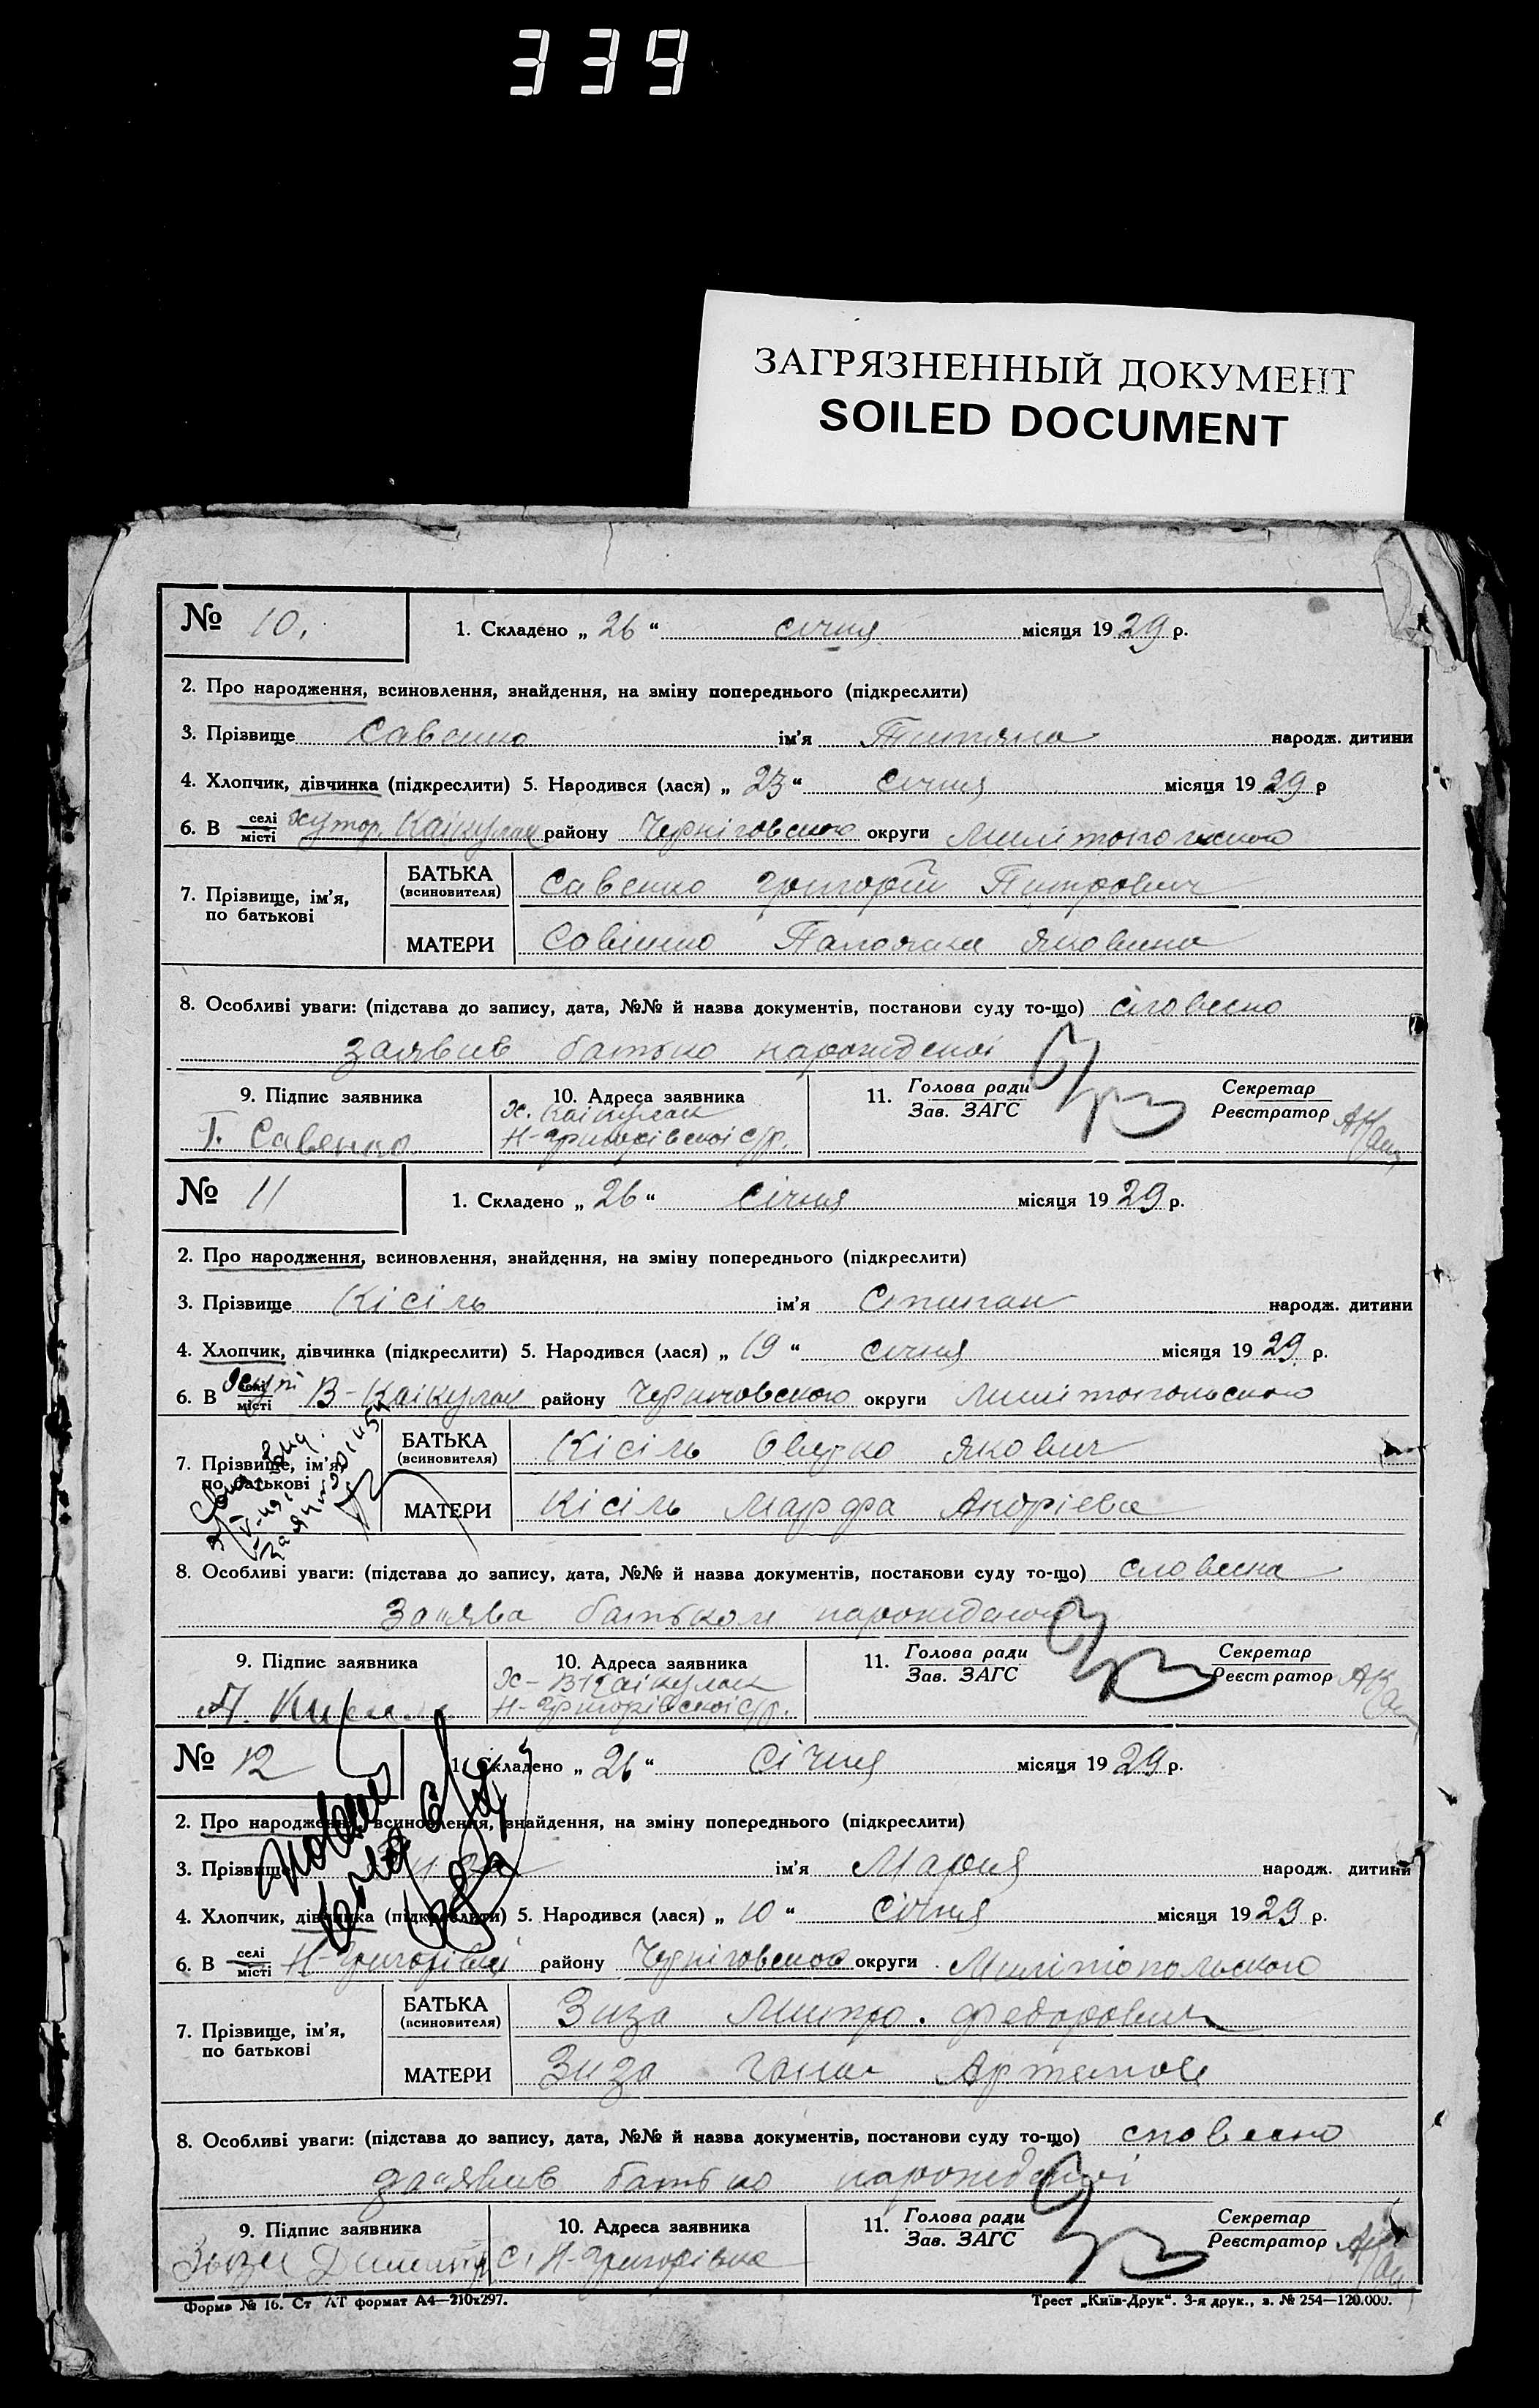 339
ЗАГРЯЗНЕННЫЙ ДОКУМЕНТ
SOILED DOCUMENT
№ 10. 1. Складено „ 26 “ січня місяця 1929 р.
2. Про народження, всиновлення, знайдення, на зміну попереднього (підкреслити)
3. Прізвище Савенко ім'я Титяна народж. дитини
4. Хлопчик, дівчинка (підкреслити) 5. Народився (лася) „ 23 “ січня місяця 1929 р
6. В селі місті хутор. Каікулак району Черніговського округи Милітопольскою
7. Прізвище, ім'я, по батькові
БАТЬКА (всиновителя) Савенко Григорій Питрович
МАТЕРИ Савенко Палажка Яковина
8. Особливі уваги: (підстава до запису, дата, №№ й назва документів, постанови суду то-що) словесно
заявив батько народженої
9. Підпис заявника 10. Адреса заявника 11. Голова ради Зав. ЗАГС Секретар Реєстратор
Х. Каікулак
Г. Савенко Н-Григорівскоі с/р.
№ 11 1. Складено „ 26 “ січня місяця 1929 р.
2. Про народження, всиновлення, знайдення, на зміну попереднього (підкреслити)
3. Прізвище Кісіль ім'я Стипан народж. дитини
4. Хлопчик, дівчинка (підкреслити) 5. Народився (лася) „ 19 “ січня місяця 1929 р.
6. В селі місті В-Каікулак району Черниговського округи Милітопольского
7. Прізвище, ім'я, по батькові
БАТЬКА (всиновителя) Кісіль Якович
МАТЕРИ Кісіль Марфа Андріевна
8. Особливі уваги: (підстава до запису, дата, №№ й назва документів, постанови суду то-що) словесна
Заява батьком
9. Підпис заявника 10. Адреса заявника 11. Голова ради Зав. ЗАГС Секретар Реєстратор
Х- В Каікулак
Н-Григорівскоі с/р.
№ 12 1. Складено „ 26 “ січня місяця 1929 р.
2. Про народження, всиновлення, знайдення, на зміну попереднього (підкреслити)
3. Прізвище Зиза ім'я Мария народж. дитини
4. Хлопчик, дівчинка (підкреслити) 5. Народився (лася) „ 10 “ січня місяця 1929 р.
6. В селі місті Н-Григорівці району Черніговского округи Милітопольского
7. Прізвище, ім'я, по батькові
БАТЬКА (всиновителя) Зиза Митро. Федорович
МАТЕРИ Зиза Ганна Артемов
8. Особливі уваги: (підстава до запису, дата, №№ й назва документів, постанови суду то-що) словесно
заявив батько народженоі
9. Підпис заявника 10. Адреса заявника 11. Голова ради Зав. ЗАГС Секретар Реєстратор
Зыза Дмитр с. Н-Григорівка
Форма № 16. Ст АТ формат А4—210х297. Трест „Київ-Друк“. 3-я друк., з. № 254—120.000.